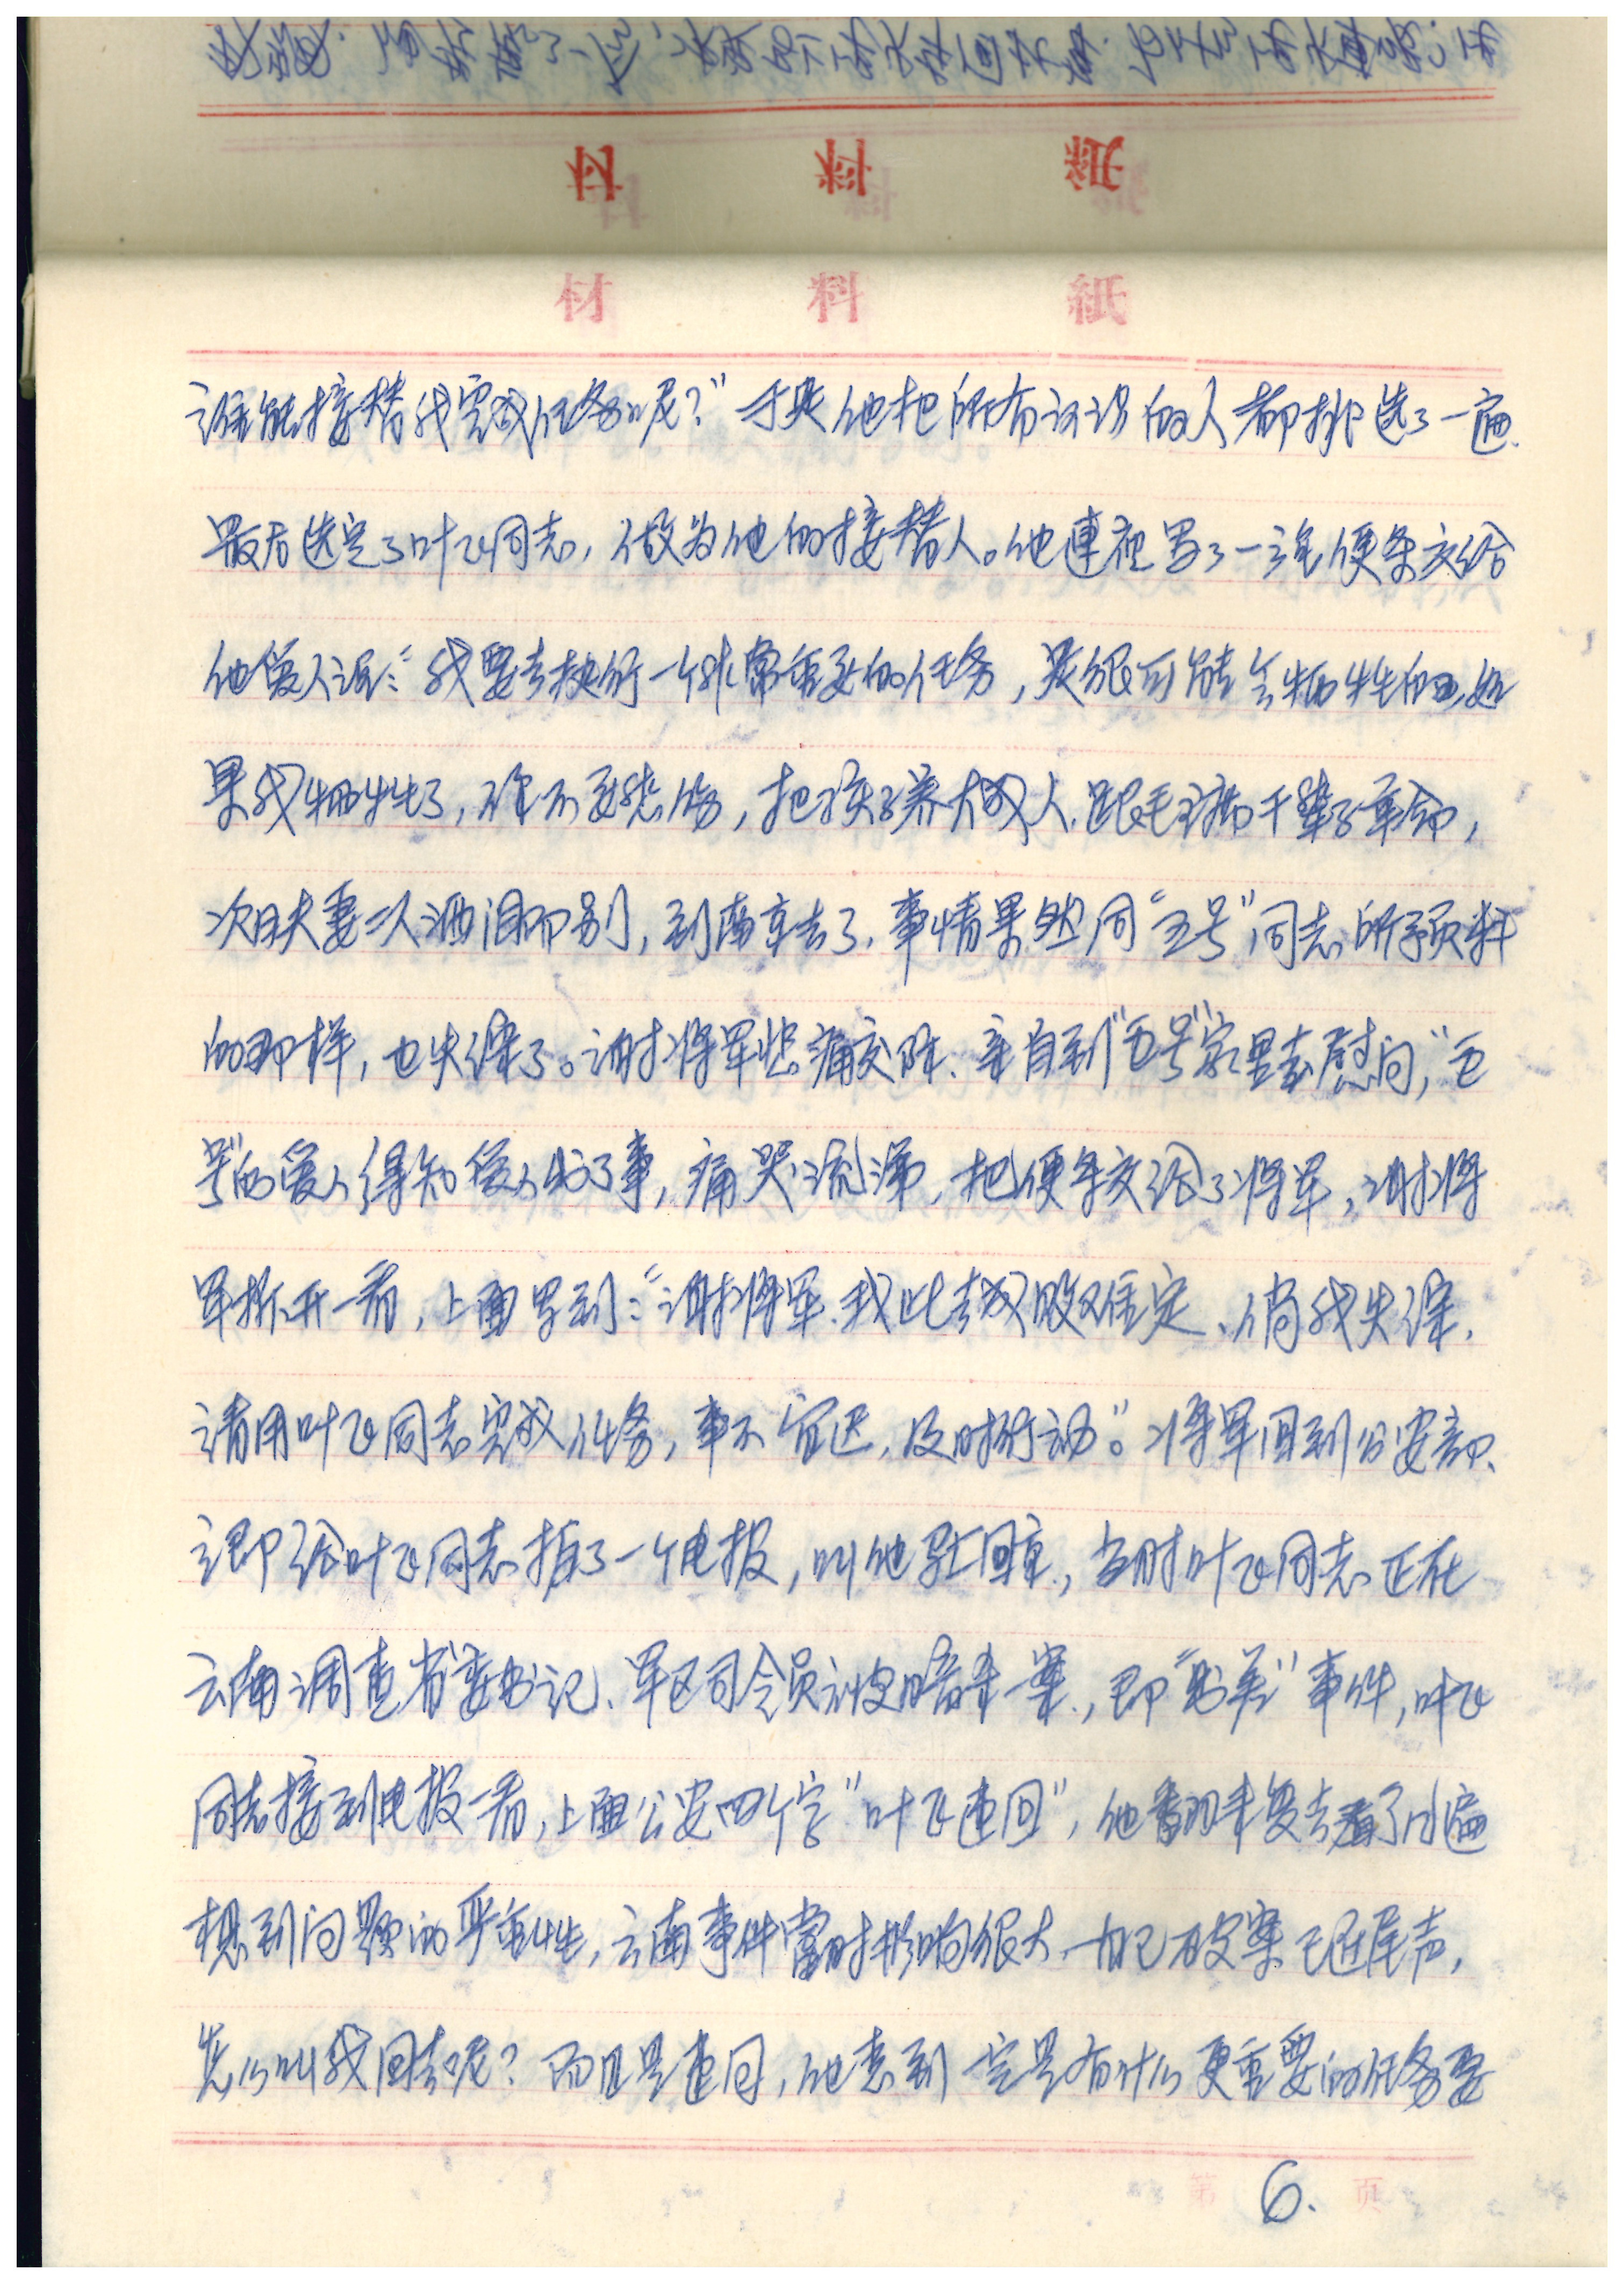 材料紙
谁能接替我完成任务呢？”于是他把所有认识的人都挑选了一遍.
最后选定了叶飞同志，做为他的接替人。他連夜写了一张便条交给
他爱人说：“我要去执行一个非常重要的任务，是很可能会牺牲的，如
果我牺牲了，你不要悲伤，把孩子养大成人.跟毛主席干一辈子革命，
次日夫妻二人洒泪而别，到南京去了，事情果然同“五号”同志所预料
的那样，也失踪了。谢将军悲痛交际、亲自到“五号”家里去慰问，“五
号”的爱人得知爱人出了事，痛哭流涕，把便条交给了将军，谢将
军拆开一看，上面写到：“谢将军.我此去成败难定、倘我失踪.
请用叶飞同志完成任务，事不宜迟，及时行动”。将军回到公安部、
立即给叶飞同志拍了一个电报，叫他回京，当时叶飞同志正在
云南调查省委书记、军区司令员被暗杀一案，即事件，叶飞
同志接到电报一看，上面公安四个字“叶飞速回”，他翻来复去看了几遍
想到问题的严重性，云南事件當时影响很大、自己破案已近尾声，
怎么叫我回去呢？而且是速回，他想到一定是有什么更重要的任务要
第6.页